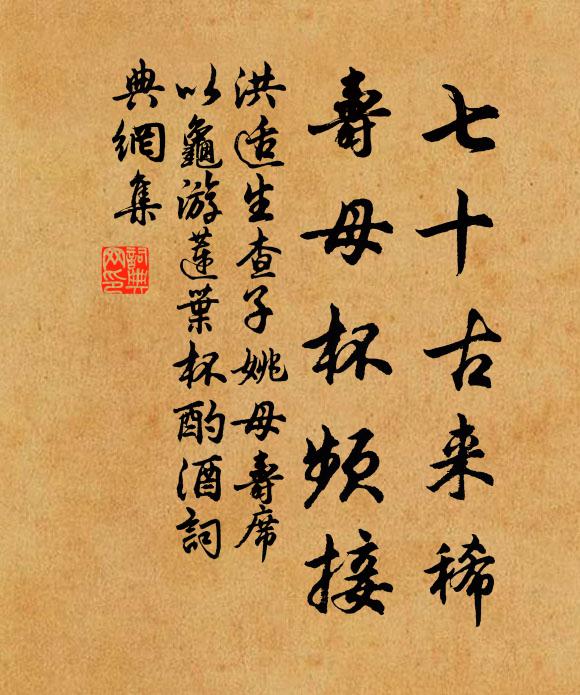 七十古来稀
壽母杯頻接
洪适生查子姚母壽席
以龜游蓮葉杯酌酒詞
典網集
詞典
网印